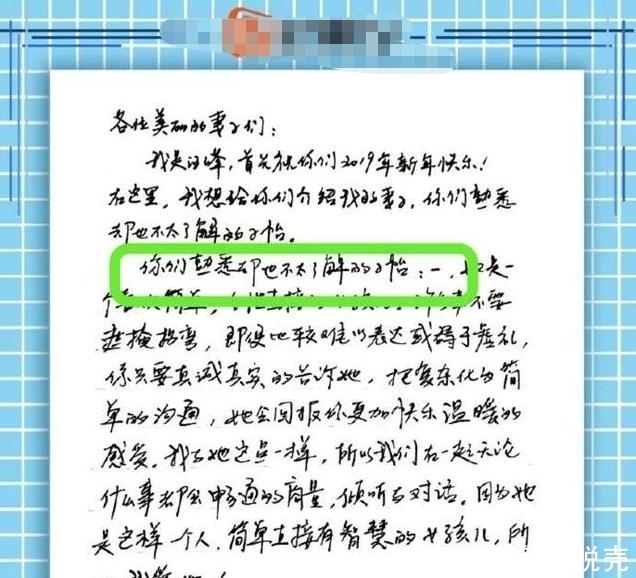 各位美丽的妻子们：
我是汪峰，首先祝你们2019年新年快乐！
在这里，我想给你们介绍我的妻子，你们熟悉
却也不太了解的子怡。
你们熟悉却也不太了解的子怡：一，她是一
个 简单， 直接 不要
遮掩拐弯，即便比较难以表达或碍于礼，
你只要真诚真实的告诉她，把复杂化为简
单的沟通，她会回报你更加快乐温暖的
感受。我与她这点一样，所以我们在一起无论
什么事都会畅通的商量，倾听与对话。因为她
是这样一个人，简单直接有智慧的女孩儿，所
说壳